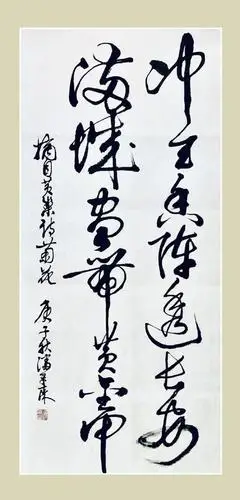 冲天香阵透长安
满城尽带黄金甲
摘自黄巢诗菊花 庚子秋潘